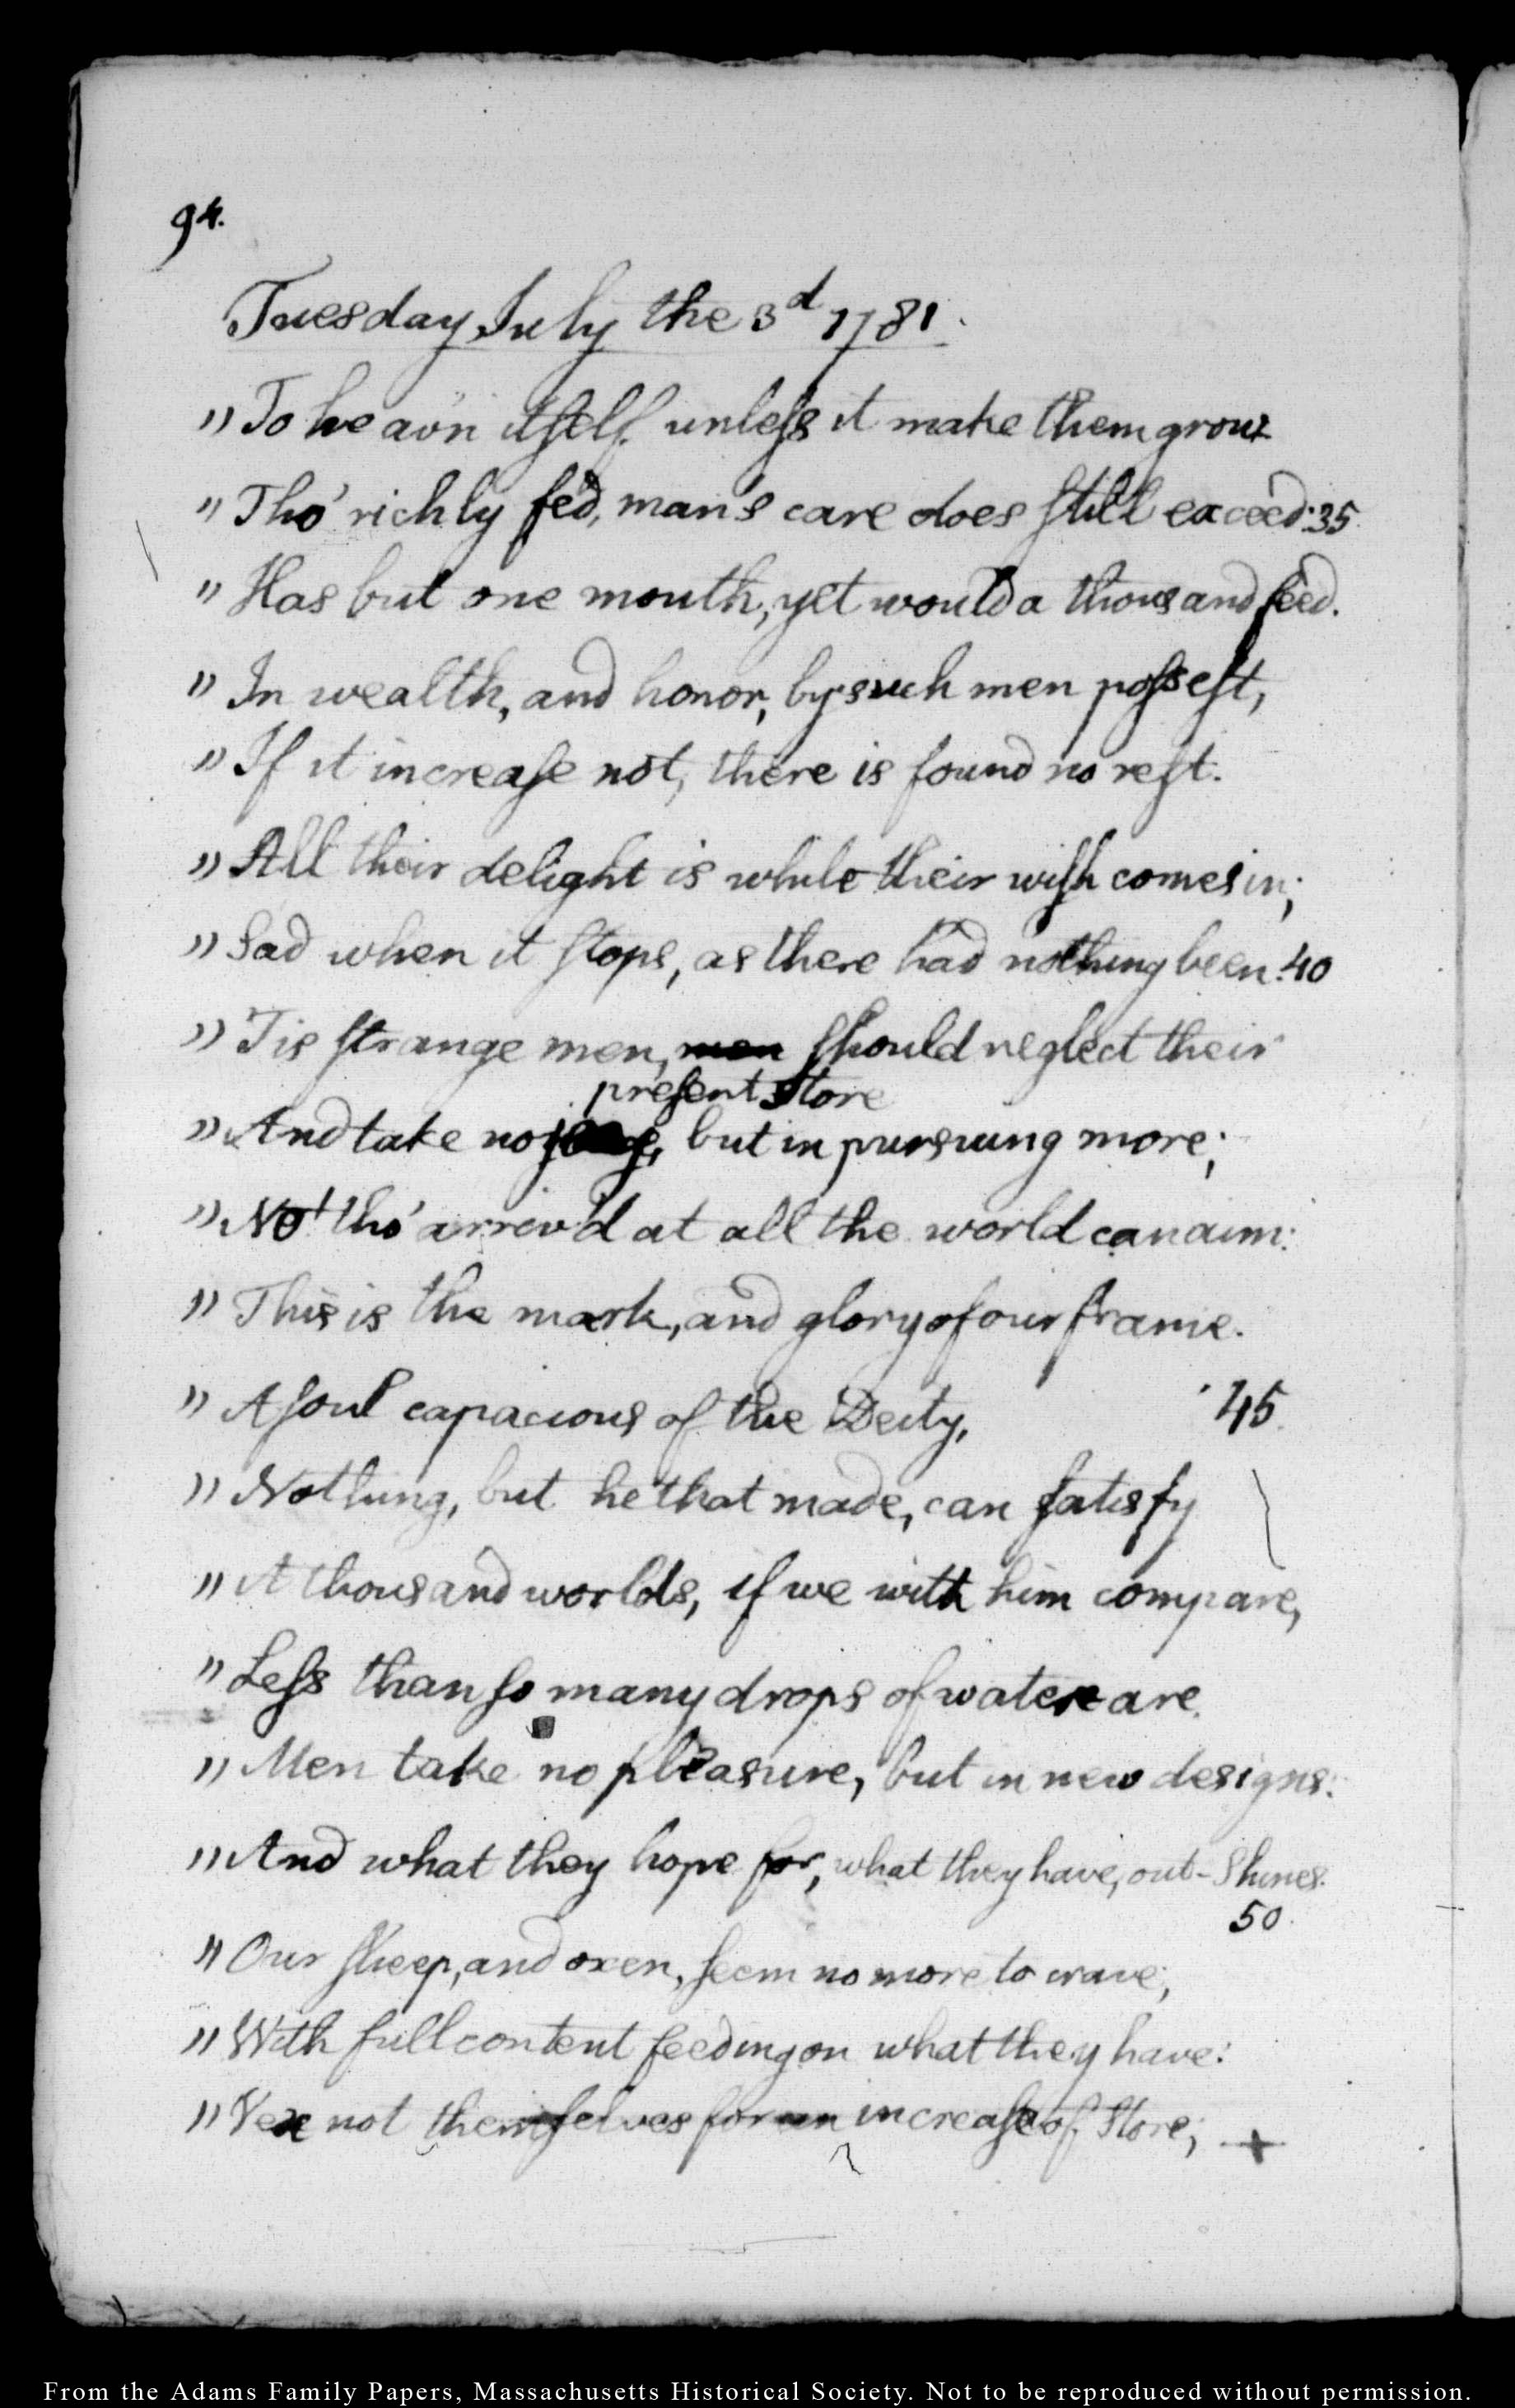 94.
Tuesday July the 3d 1781.
"To heav'n itself unless it make them grow
"Tho' richly fed, man's care does still exceed: 35
"Has but one mouth, yet would a thousand feed.
"In wealth, and honor, by such men possest,
"If it increase not, there is found no rest.
"All their delight is while their wish comes in;
"Sad when it stops, as there had nothing been: 40
"Tis strange men, men should neglect their
present store
"And take no , but in pursuing more;
"Not tho' arriv'd at all the world can aim:
"This is the mark, and glory of our frame.
"A soul capacious of the Deity, 45
"Nothing, but he that made, can satisfy
"A thousand worlds, if we with him compare,
"Less than so many drops of water are.
"Men take no pleasure, but in new designs:
"And what they hope for, what they have, out-shines.
50.
"Our sheep, and oxen, seem no more to crave;
"With full content feeding on what they have:
"Vex not themselves for an increase of store; +
From the Adams Family Papers, Massachusetts Historical Society. Not to be reproduced without permission.